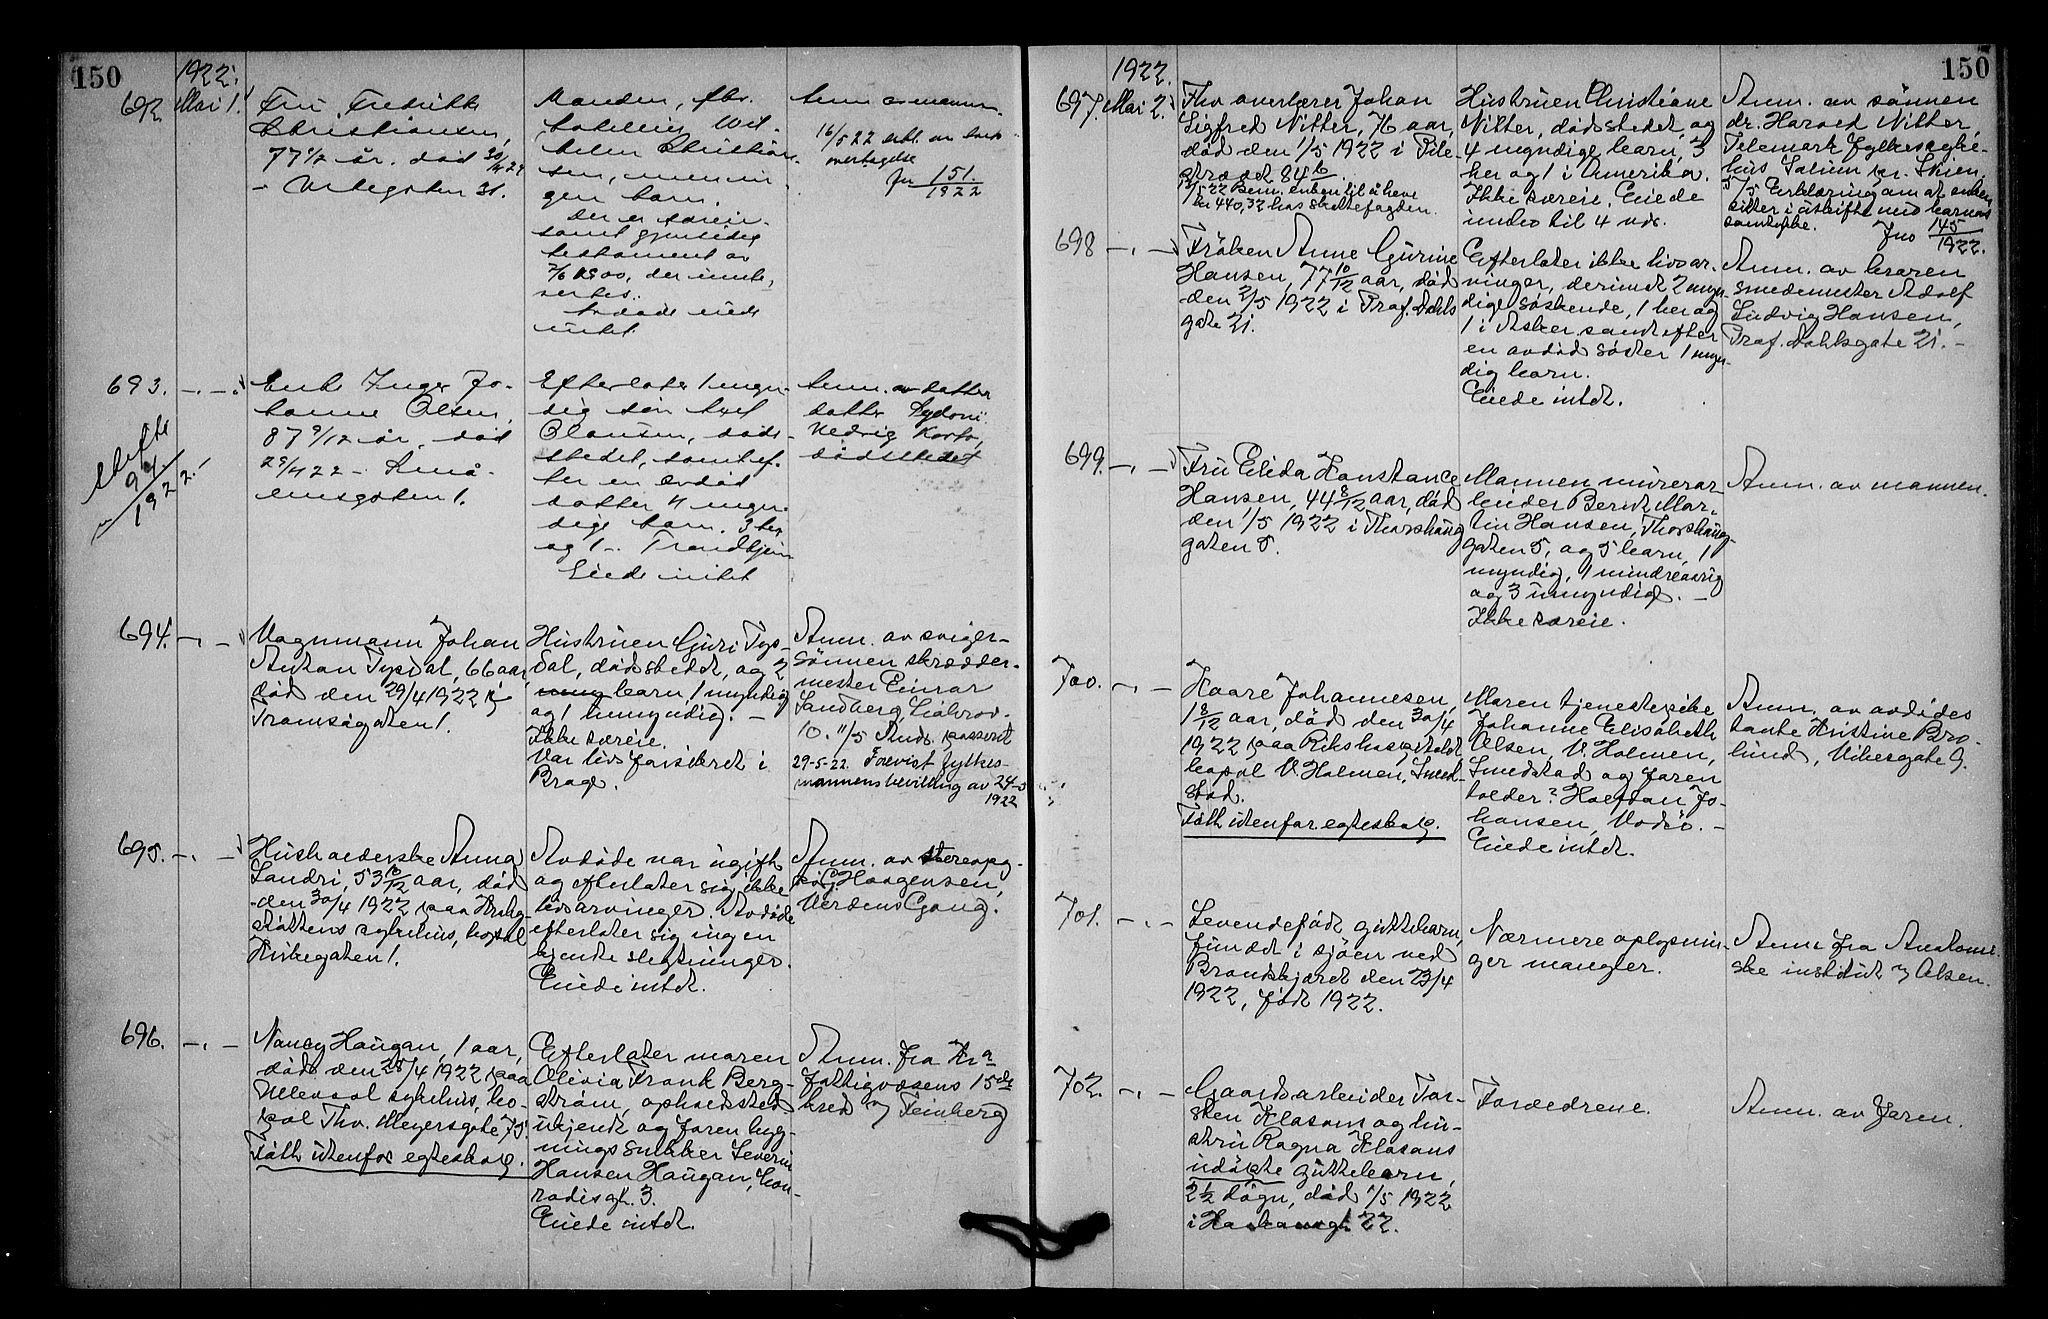 150
1922.
692 Mai 1.
Fru Fredrikke
Christiansen,
77 1/2 år, død 30/4 22
- Urtegaten 31.
Manden, fhv.
Wil-
helm Christian-
sen, men in-
gen barn.
Der er særeie
samt gjensidig
testament av
1900, der
Avdøde eiede
intet.
Anm. av mannen.
16/5 22 erkl. om
overtagelse
Jnr 151/1922
693. -.-
Skifte
94/1922.
Enke Inger Jo-
hanne Olsen,
87 9/12 år, død
29/4 22 - Små-
lensgaten 1.
Efterlater 1 myn-
dig søn Axel
Olausen, døds-
stedet, samt ef-
ter en avdød
datter 4 myn-
dige barn. 3 her
og 1 - Trondhjem
Eiede intet
Anm. av datter
datter
Hedvig
dødsstedet
694. -.-
Vognmann Johan
Anton Tysdal, 66 aar,
død den 29/4 1922 i
Tromsøgaten 1.
Hustruen Guri Tys-
dal, dødsstedet, og 2
barn 1 myndig
og 1 umyndig. -
Ikke særeie.
Var livsforsikret i
Brage.
Anm. av sviger-
sønnen skrædder-
mester Einar
Sandberg,
10. 11/5 Ands. passert
29-5-22. Forevist fylkes-
mannens bevilling av 24-5
1922
695. -.-
Husholderske Anna
Landri, 53 10/12 aar, død
den 30/4 1922 paa Krohg-
støttens sykehus, bopæl
Kirkegaten 1.
Avdøde var ugift
og efterlater sig ikke
livsarvinger. Avdøde
efterlater sig ingen
kjente slegtninger.
Eiede intet.
Anm. av
Haagensen,
Verdens Gang.
696. -.-
Nancy Haugan, 1 aar,
død den 28/4 1922 paa
Ullevaal sykehus, bo-
pæl Thv. Meyersgate 75.
Født utenfor egteskap.
Efterlater moren
Olivia Frank Berg-
strøm, opholdssted
ukjent og faren byg-
ningssnekker Severin
Hansen Haugan, Con-
radisgt. 3.
Eiede intet.
Anm. fra Kra
fattigvæsens 15de
kred v/ Feinberg
150
1922.
697. Mai 2.
Fhv overlærer Johan
Sigfred Nitter, 76 aar,
død den 1/5 1922 i Pile-
strædet 84 b.
12/5 22 Bem. enken til å heve
kr 440,32 hos skattefogden.
Hustruen Christiane
Nitter, dødsstedet, og
4 myndige barn, 3
her og 1 i Amerika.
Ikke særeie. Eiede
indtil 4 
Anm. av sønnen
dr. Harald Nitter,
Telemark fylkessyke-
hus Solum pr. Skien.
5/5 Erklæring om at enken
sitter i uskifte med barnas
samtykke. Jno 145/1922.
698 -.-
Frøken Anne Gurine
Hansen, 77 10/12 aar, død
den 2/5 1922 i Prof. Dahls
gate 21.
Efterlater ikke livsar-
vinger, derimot 2 myn-
dige søskende, 1 her og
1 i Asker samt efter
en avdød søster 1 myn-
dig barn.
Eiede intet.
Anm. av broren
smedemester Adolf
Ludvig Hansen,
Prof. Dahlsgate 21. -
699. -.-
Fru Elida Konstance
Hansen, 44 8/12 aar, død
den 1/5 1922 i Thorshaug
gaten 5.
Mannen murerar-
beider Bernt Mar-
tin Hansen, Thorshaug-
gaten 5, og 5 barn, 1
myndig, 1 mindreaarig
og 3 umyndige. -
Ikke særeie.
Anm. av mannen.
700. -.-
Kaare Johannesen,
1 8/12 aar, død den 30/4
1922 paa Rikshospitalet
bopæl V. Holmen, Smed-
stad.
Født utenfor egteskap.
Moren tjenestepike
Johanne Elisabeth
Olsen, V. Holmen,
Smedstad og faren
tolder? Halfdan Jo-
hansen, Vadsø. -
Eiede intet.
Anm. av avdødes
tante Kristine Bro-
lund, Vibesgate 9.
701. -.-
Levendefødt guttebarn,
fundet i sjøen ved
Brandskjæret den 23/4
1922, født 1922.
Nærmere oplysnin-
ger mangler.
Anm fra Anatomi-
ske institut v/ Olsen.
702. -.-
Gaardsarbeider Tor-
sten Klasons og hu-
stru Ragna Klasons
udøpte guttebarn,
2 1/2 døgn, død 1/5 1922
i 22.
Forældrene.
Anm. av faren.